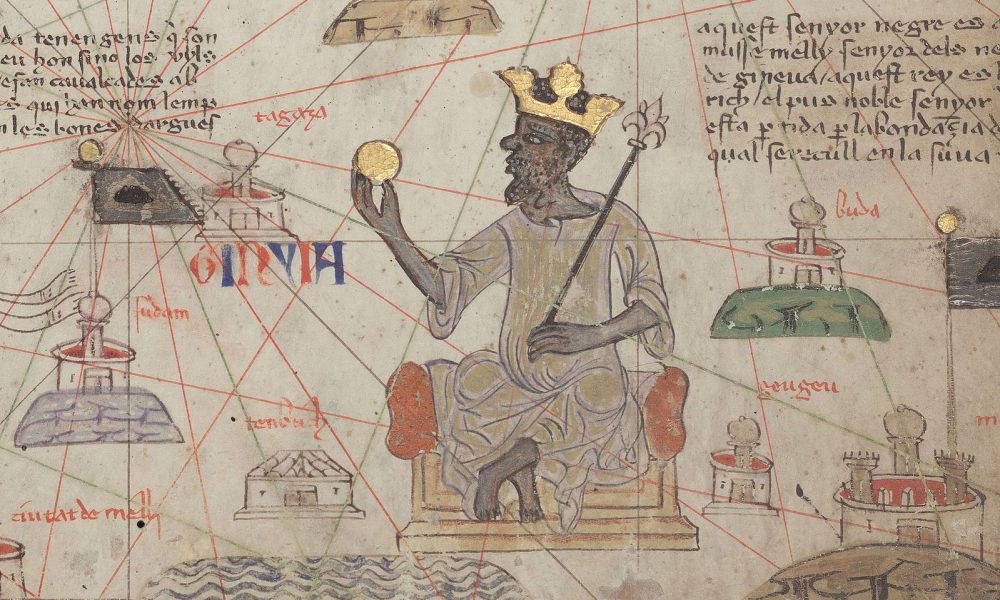 tenen gens q̃ son
hon sino los uyls
caualcades ab
qui han nom lemp
les bones dargues
aquest senyor negre es
musse melly senyor dels ne
de gineua / aquest rey es
rich / el pus noble senyor
esta p̱tida p̱ labondãcia d
qual se recull en la sua
tagaza
buda
GINVIA
sudam
geugeu
tenbuch
m
ciutat de melly